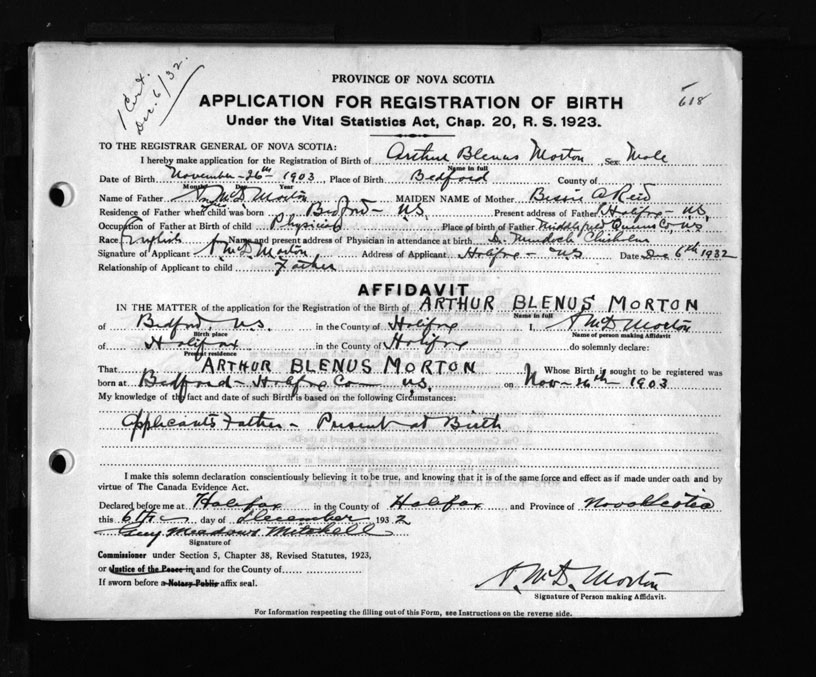 1 Cert.
Dec. 6/32.
618
PROVINCE OF NOVA SCOTIA
APPLICATION FOR REGISTRATION OF BIRTH
Under the Vital Statistics Act, Chap. 20, R. S. 1923.
TO THE REGISTRAR GENERAL OF NOVA SCOTIA:
I hereby make application for the Registration of Birth of Arthur Blenus Morton Sex Male
Name in full
Date of Birth November 26th 1903 Place of Birth Bedford County of
Month Day Year
Name of Father A McD Morton MAIDEN NAME of Mother Bessie A Reid
Residence of Father when child was born Bedford - N.S. Present address of Father Halifax - N.S.
Occupation of Father at Birth of child Physician Place of birth of Father Middlefield Queens Co N.S
Race English Name and present address of Physician in attendance at birth D. Murdoch Chisholm
Signature of Applicant A McD Morton Address of Applicant Halifax - N.S Date Dec 6th 1932
Relationship of Applicant to child Father
AFFIDAVIT
IN THE MATTER of the application for the Registration of the Birth of ARTHUR BLENUS MORTON
Name in full
of Bedford, N.S. in the County of Halifax I, A McD Morton
Birth place Name of person making Affidavit
of Halifax in the County of Halifax do solemnly declare:
Present residence
That ARTHUR BLENUS MORTON Whose Birth is sought to be registered was
born at Bedford - Halifax Co N.S. on Nov - 26th 1903
My knowledge of the fact and date of such Birth is based on the following Circumstances:
Applicants Father - Present at Birth
I make this solemn declaration conscientiously believing it to be true, and knowing that it is of the same force and effect as if made under oath and by
virtue of The Canada Evidence Act.
Declared before me at Halifax in the County of Halifax and Province of Nova Scotia
this 6th day of December 1932
Guy Meadows Mitchell
Signature of
Commissioner under Section 5, Chapter 38, Revised Statutes, 1923,
or Justice of the Peace in and for the County of
If sworn before a Notary Public affix seal.
A. McD. Morton
Signature of Person making Affidavit.
For Information respecting the filling out of this Form, see Instructions on the reverse side.